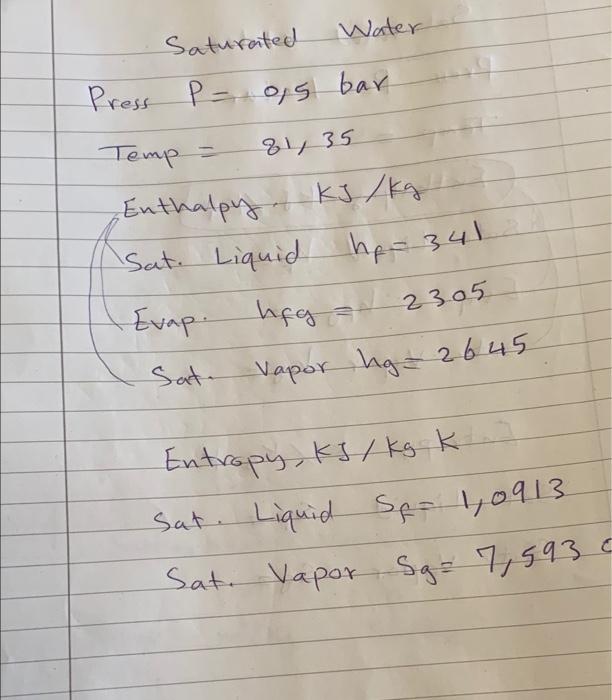 Saturated Water
Press P = 0,5 bar
Temp = 81,35
Enthalpy. KJ/kg
Sat. Liquid hf = 341
Evap. hfg = 2305
Sat. Vapor hg = 2645
Entropy, KJ/kg K
Sat. Liquid Sf = 1,0913
Sat. Vapor Sg = 7,593